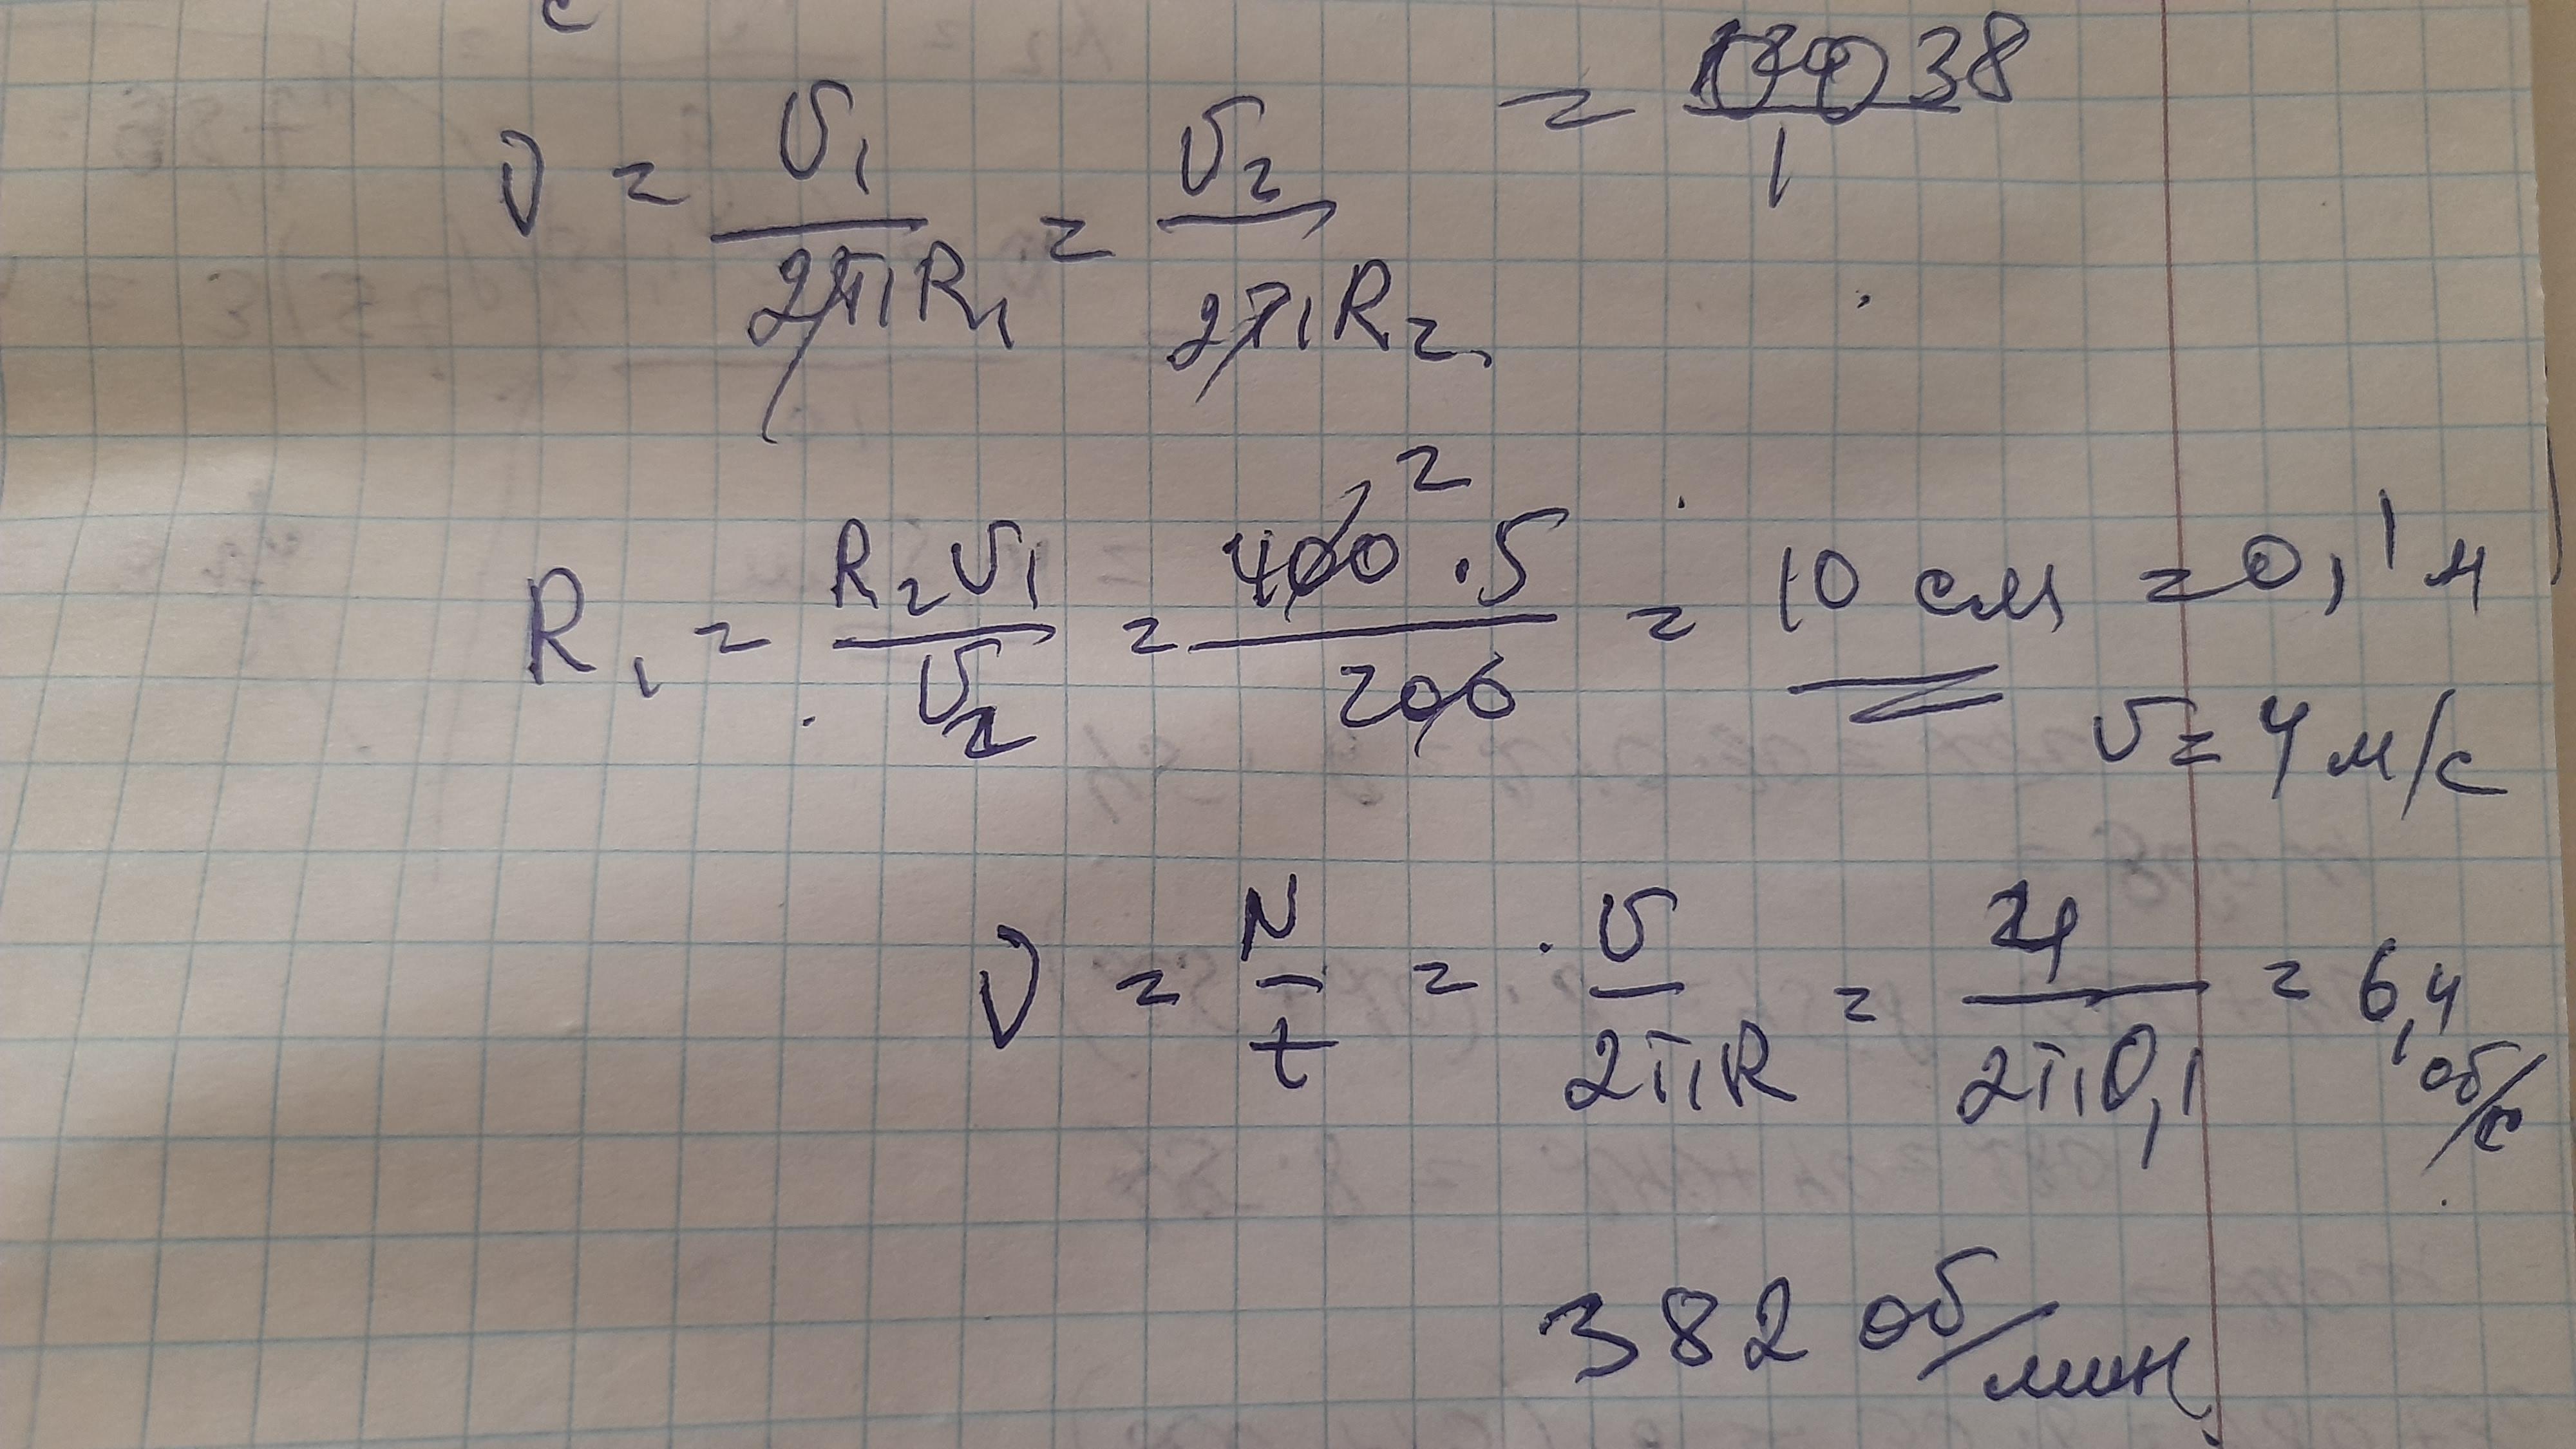 с
ν = υ₁ / 2πR₁ = υ₂ / 2πR₂
= 38 / 1
R₁ = R₂υ₁ / υ₂ = 400 · 5 / 200 = 10 см = 0,1 м
2
υ = 4 м/с
ν = N / t = υ / 2πR = 4 / 2π0,1 = 6,4 об/с
382 об/мин